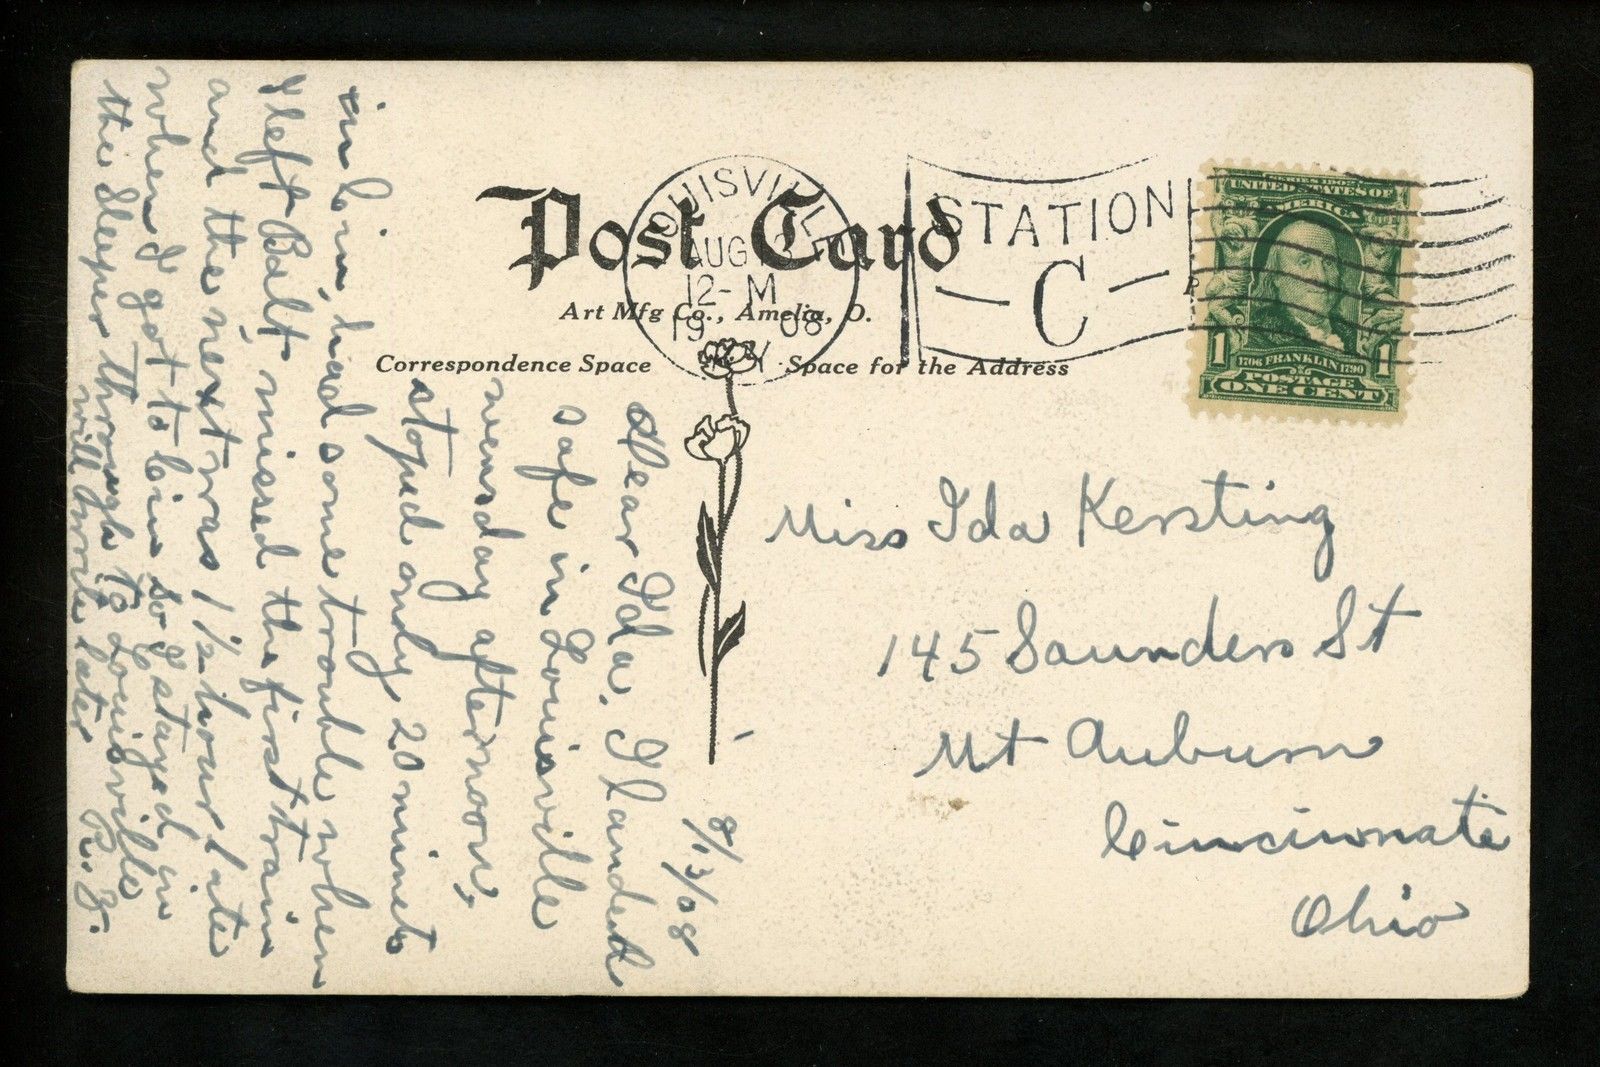 Post Card
Art Mfg Co., Amelia, O.
Correspondence Space
Space for the Address
LOUISVILLE
AUG
12-M
19 08
KY.
STATION
C
SERIES 1902
UNITED STATES OF
AMERICA
1706 FRANKLIN 1790
POSTAGE
ONE CENT
1
1
8/13/08
Dear Ida, I landed
safe in Louisville
wensday afternoon,
stoped only 20 minets
in Cin, had some trouble when
I left Balt missed the first train
and the next was 1 1/2 hour late
when I got to Cin so I stayed in
the Sleeper through to Louisville
will write later R. Z.
Miss Ida Kersting
145 Saunders St
Mt Auburn
Cincinnati
Ohio